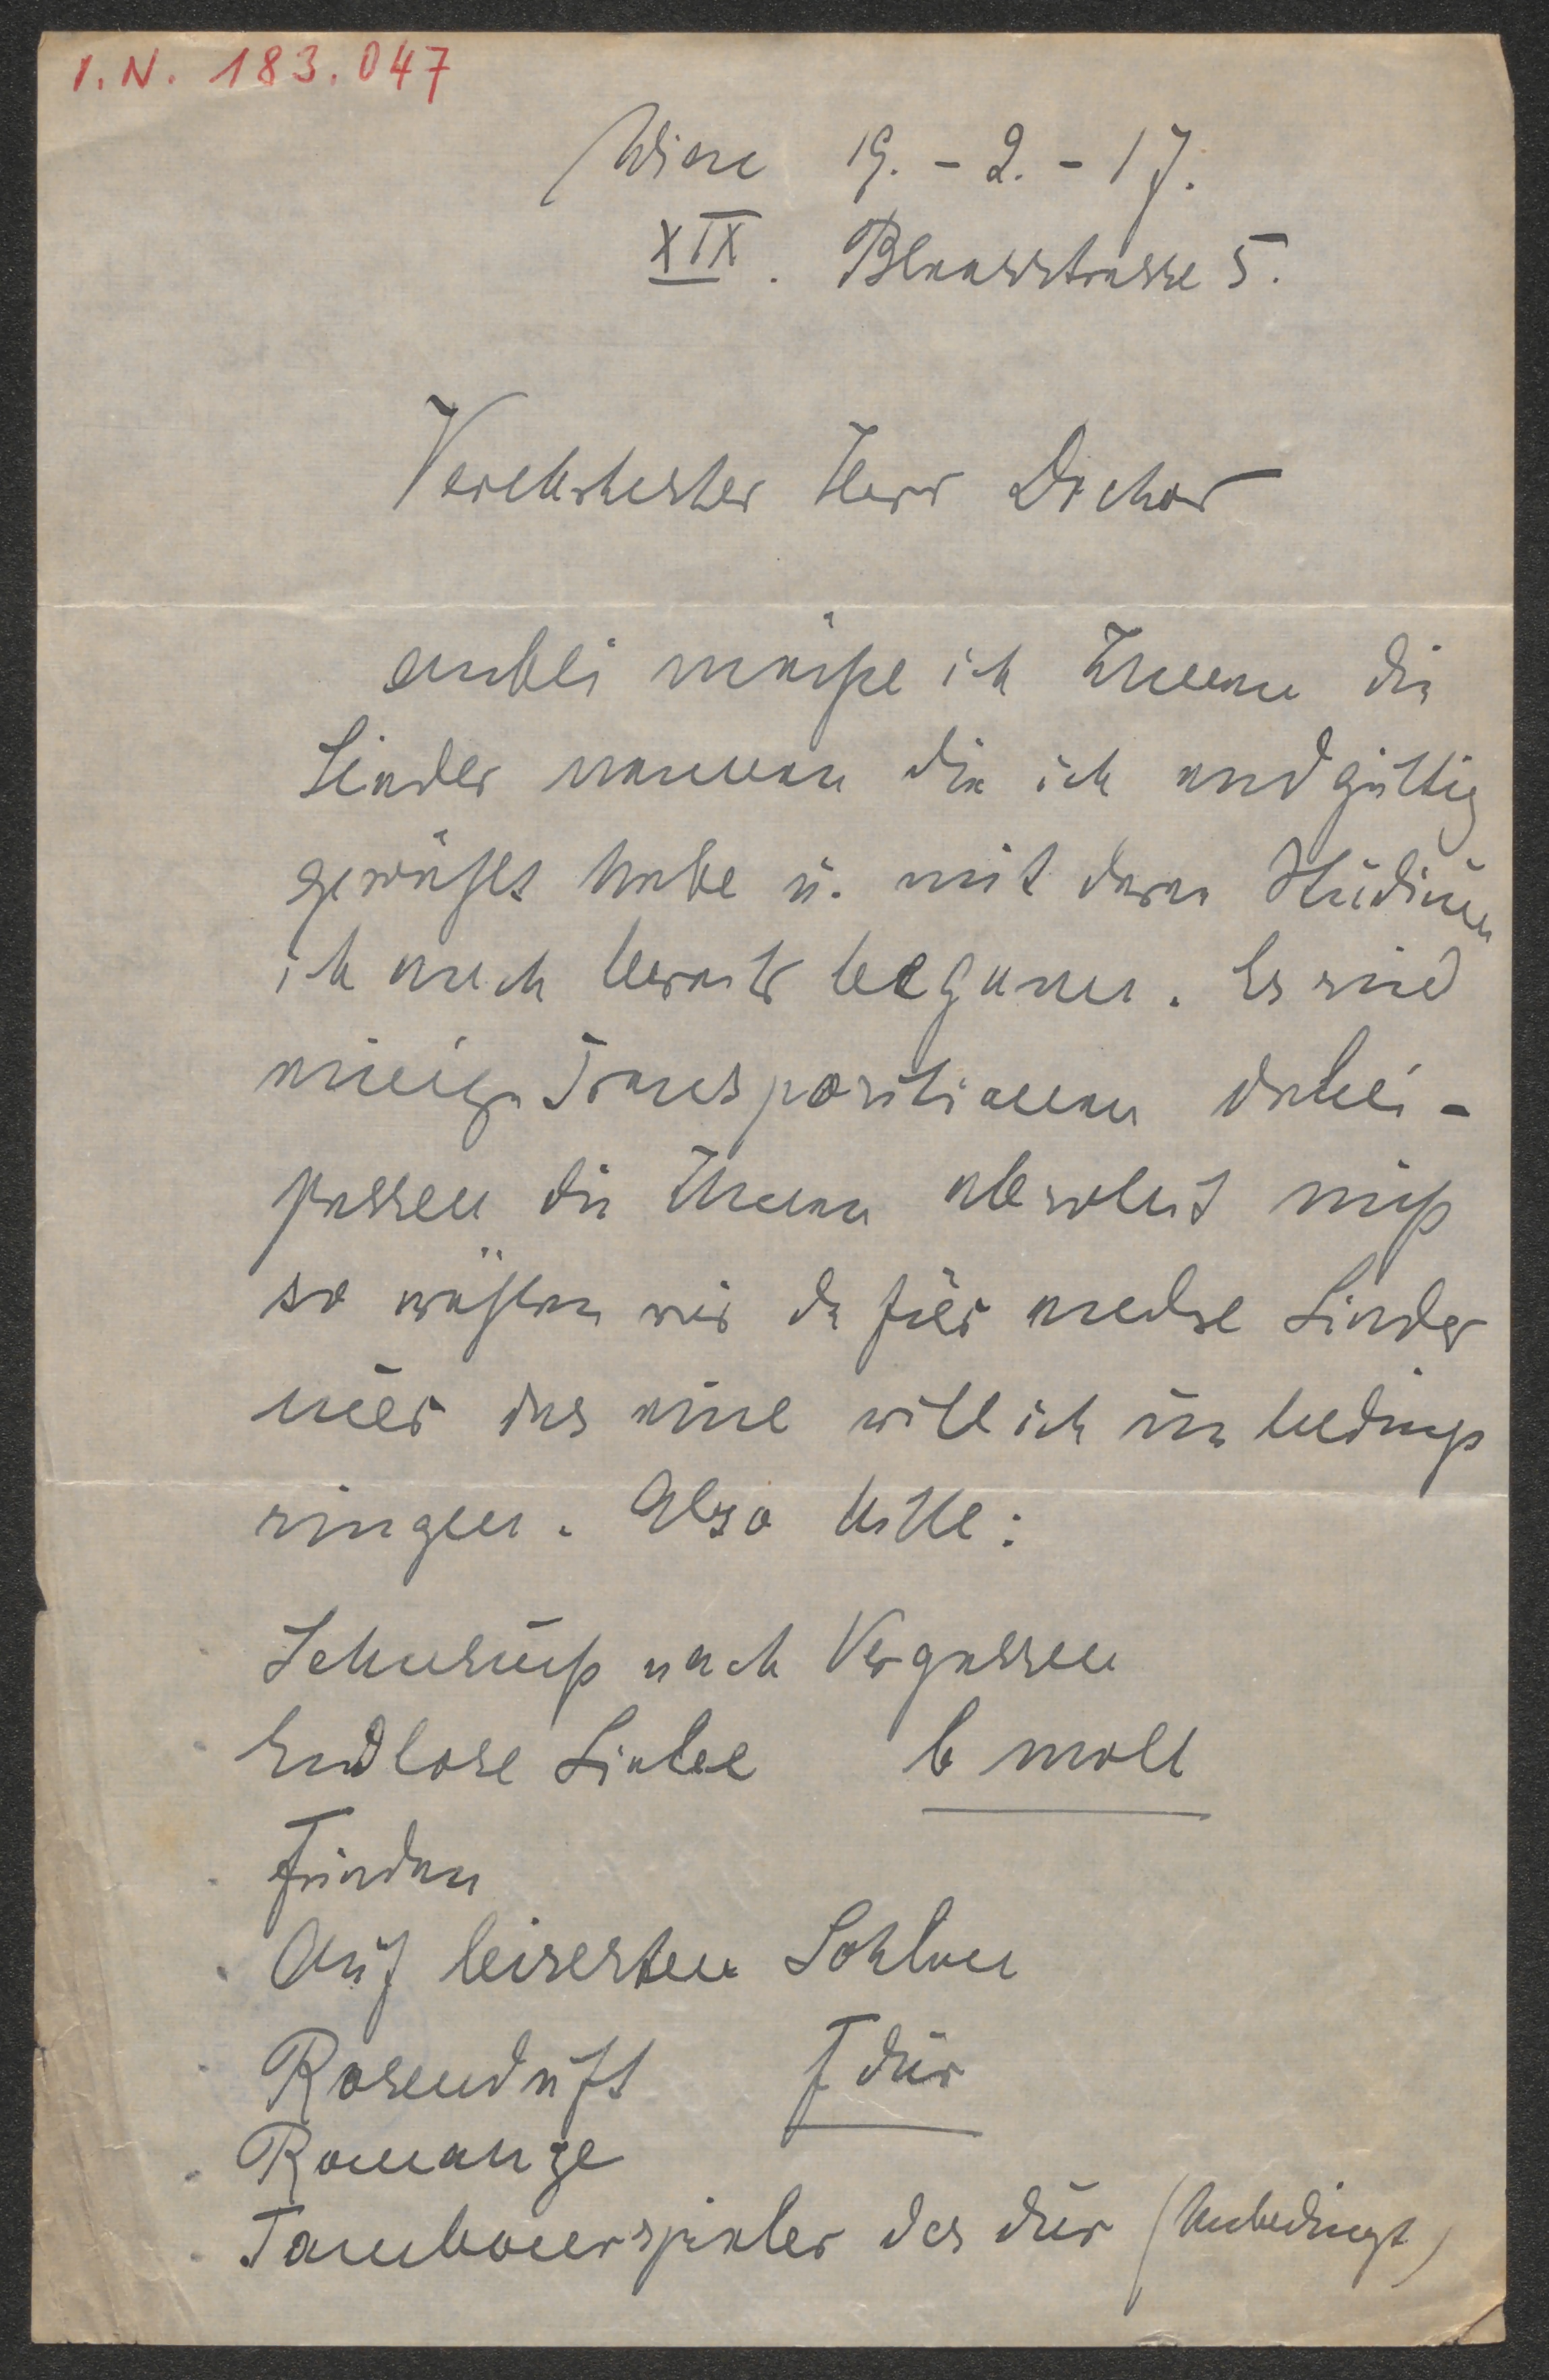 I.N. 183.047
Wien 19. - 2. - 17.
XIX. Blaasstrasse 5.
Verehrtester Herr Doktor
anbei möchte ich Ihnen die
Lieder nennen die ich endgültig
gewählt habe u. mit deren Studium
ich auch bereits begann. Es sind
einige Transpositionen dabei -
passen die Ihnen absolut nicht
so wählen wir dafür andre Lieder
nur das eine will ich unbedingt
singen. Also bitte:
Sehnsucht nach Vergessen
Endlose Liebe b moll
Frieden
Auf leisesten Sohlen
Rosenduft F dur
Romanze
Tambourspieler des dur (Unbedingt)